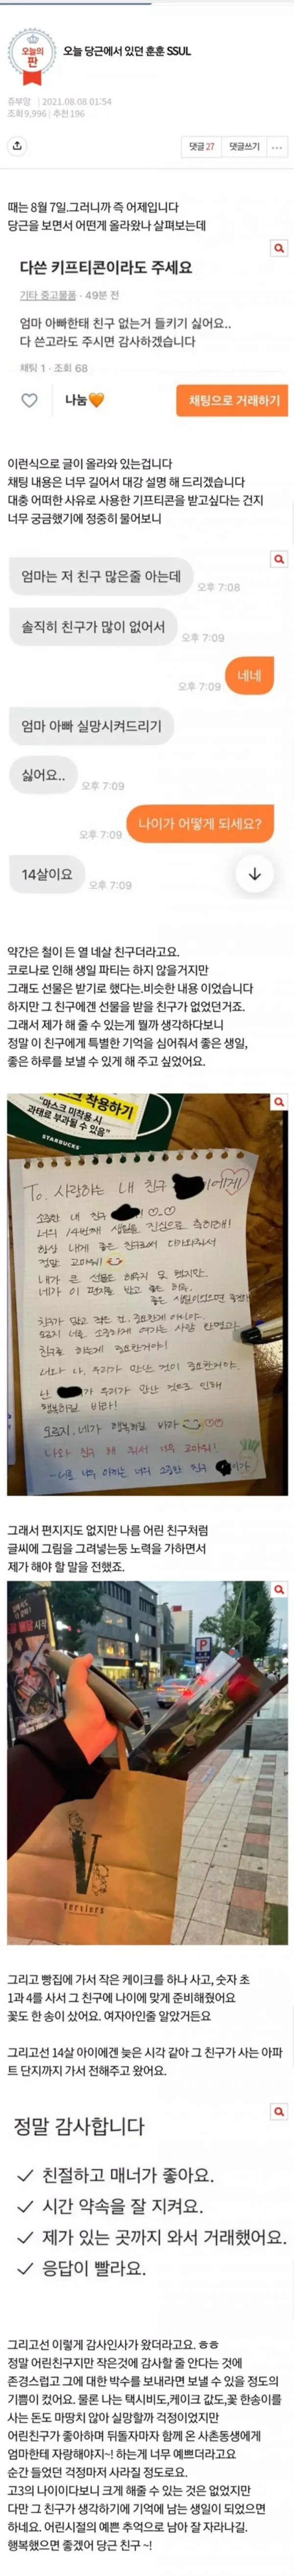 오늘의
판
오늘 당근에서 있던 훈훈 SSUL
쥬부앙 | 2021.08.08 01:54
조회 9,996 | 추천 196
댓글 27
댓글쓰기
때는 8월 7일.그러니까 즉 어제입니다
당근을 보면서 어떤게 올라왔나 살펴보는데
다쓴 키프티콘이라도 주세요
기타 중고물품 · 49분 전
엄마 아빠한태 친구 없는거 들키기 싫어요..
다 쓴고라도 주시면 감사하겠습니다
채팅 1 · 조회 68
나눔🧡
채팅으로 거래하기
이런식으로 글이 올라와 있는겁니다
채팅 내용은 너무 길어서 대강 설명 해 드리겠습니다
대충 어떠한 사유로 사용한 기프티콘을 받고싶다는 건지
너무 궁금했기에 정중히 물어보니
엄마는 저 친구 많은줄 아는데
오후 7:08
솔직히 친구가 많이 없어서
오후 7:09
네네
오후 7:09
엄마 아빠 실망시켜드리기
싫어요..
오후 7:09
나이가 어떻게 되세요?
오후 7:09
14살이요
오후 7:09
약간은 철이 든 열 네살 친구더라고요.
코로나로 인해 생일 파티는 하지 않을거지만
그래도 선물은 받기로 했다는.비슷한 내용 이었습니다
하지만 그 친구에겐 선물을 받을 친구가 없었던거죠.
그래서 제가 해 줄 수 있는게 뭘까 생각하다보니
정말 이 친구에게 특별한 기억을 심어줘서 좋은 생일,
좋은 하루를 보낼 수 있게 해 주고 싶었어요.
마스크 착용하기
"마스크 미착용 시
과태료 부과될 수 있음"
STARBUCKS
To. 사랑하는 내 친구 에게!
소중한 내 친구
너의 14번째 생일을 진심으로 축하해!
항상 내게 좋은 친구로서 다가와줘서
정말 고마워!
내가 큰 선물은 해주지 못 했지만,
네가 이 편지를 받고 좋은 하루,
좋은 생일이었으면 좋겠어
친구가 많고 적은 건, 중요한게 아니야.
오로지 너를 소중하게 여기는 사람 한명과
친구를 하는게 중요한거야!
너와 나, 우리가 만난 것이 중요한거야.
난 가 우리가 만난 것으로 인해
행복하길 바라!
오로지, 네가 행복하길 바라
나와 친구 해 줘서 너무 고마워!
-너를 너무 아끼는 너의 소중한 친구 이가
그래서 편지지도 없지만 나름 어린 친구처럼
글씨에 그림을 그려넣는둥 노력을 가하면서
제가 해야 할 말을 전했죠.
P
V
Verviers
그리고 빵집에 가서 작은 케이크를 하나 사고, 숫자 초
1과 4를 사서 그 친구에 나이에 맞게 준비해줬어요
꽃도 한 송이 샀어요. 여자아인줄 알았거든요
그리고선 14살 아이에겐 늦은 시각 같아 그 친구가 사는 아파
트 단지까지 가서 전해주고 왔어요.
정말 감사합니다
✓ 친절하고 매너가 좋아요.
✓ 시간 약속을 잘 지켜요.
✓ 제가 있는 곳까지 와서 거래했어요.
✓ 응답이 빨라요.
그리고선 이렇게 감사인사가 왔더라고요. ㅎㅎ
정말 어린친구지만 작은것에 감사할 줄 안다는 것에
존경스럽고 그에 대한 박수를 보내라면 보낼 수 있을 정도의
기쁨이 컸어요. 물론 나는 택시비도,케이크 값도,꽃 한송이를
사는 돈도 마땅치 않아 실망할까 걱정이었지만
어린친구가 좋아하며 뒤돌자마자 함께 온 사촌동생에게
엄마한테 자랑해야지~! 하는게 너무 예쁘더라고요
순간 들었던 걱정마저 사라질 정도로요.
고3의 나이이다보니 크게 해줄 수 있는 것은 없었지만
다만 그 친구가 생각하기에 기억에 남는 생일이 되었으면
하네요. 어린시절의 예쁜 추억으로 남아 잘 자라나길.
행복했으면 좋겠어 당근 친구 ~!